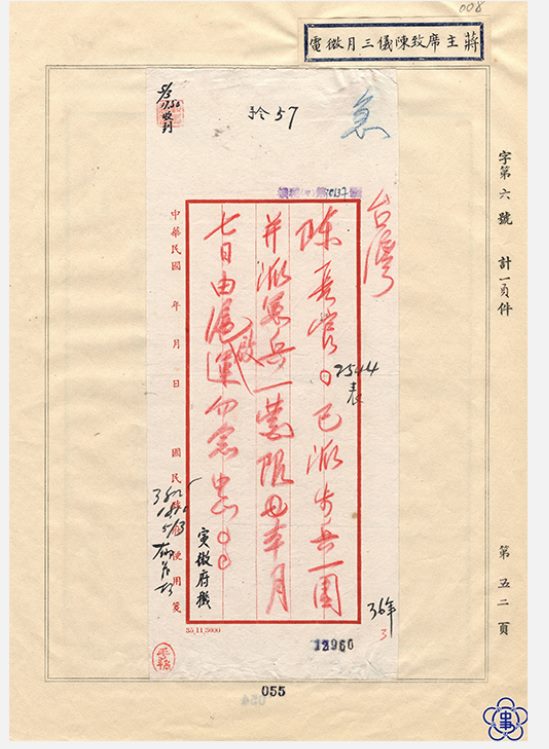 008
蔣主席致陳儀三月微電
字第六號 計一頁件
急
子令57
36/3
1730
收到
10137
台灣
陳長官。已派步兵一團
并派憲兵一營限本月
七日由滬啟運勿念中。。
2544
表
寅微府機
中華民國 年 月 日 國民政府便用箋
36年
3
35,11,3000
12960
手稿
第五二頁
055